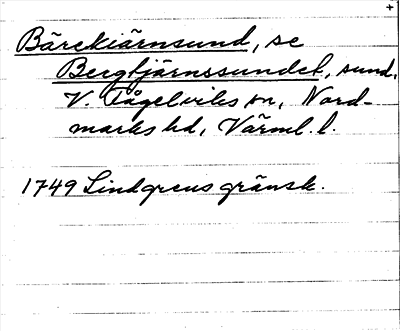 +
Bärckiärnsund, se
Bergtjärnssundet, sund,
V. Fågelviks sn, Nord-
marks hd, Värml. l.
1749 Lindgrens gränsk.